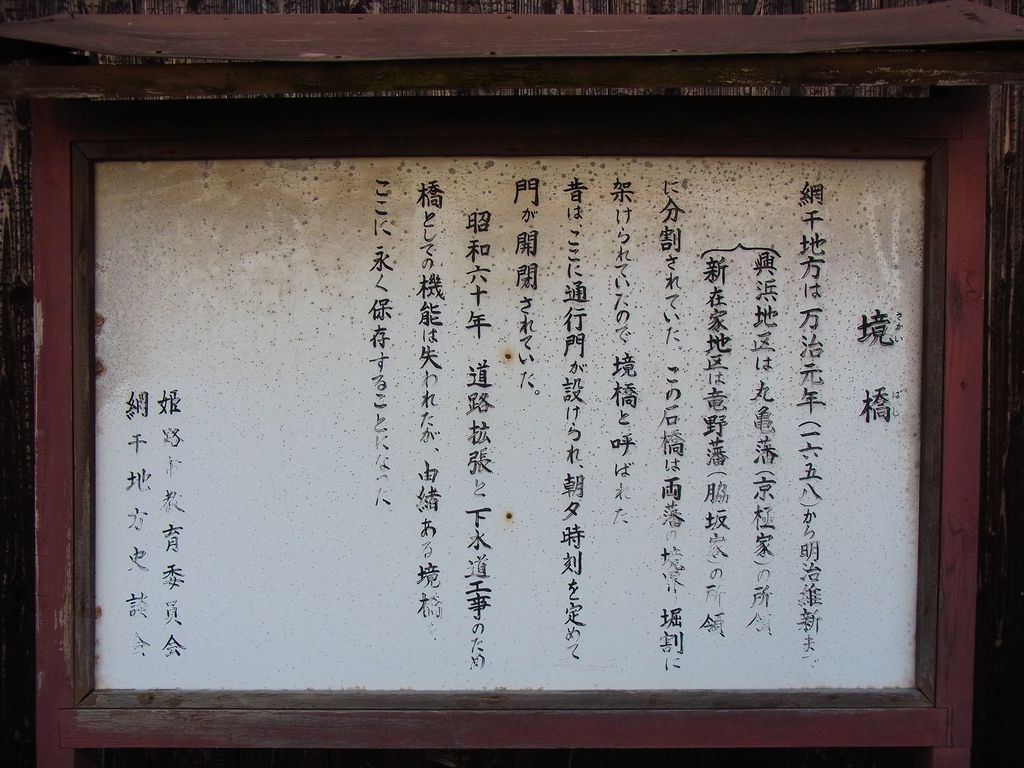 境橋
さかい はし
網干地方は万治元年(一六五八)から明治維新まで
興浜地区は丸亀藩(京極家)の所領
新在家地区は竜野藩(脇坂家)の所領
に分割されていた、この石橋は両藩の境界 堀割に
架けられていたので境橋と呼ばれた
昔はここに通行門が設けられ、朝夕時刻を定めて
門が開閉されていた。
昭和六十年 道路拡張と下水道工事のため
橋としての機能は失われたが、由緒ある境橋
ここに永く保存することになった
姫路市教育委員会
網干地方史談会